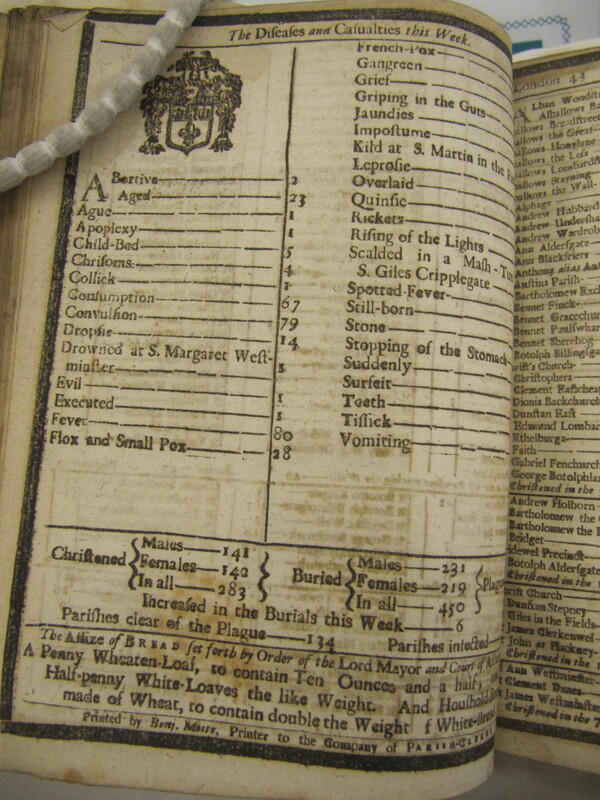 The Diseases and Casualties this Week.
Abortive 2
Aged 23
Ague 1
Apoplexy 1
Child-Bed 5
Chrisoms 4
Collick 1
Consumption 67
Convulsion 79
Dropsie 14
Drowned at S. Margaret West-
minster 1
Evil 1
Executed 1
Fever 80
Flox and Small Pox 28
French-Pox
Gangreen
Grief
Griping in the Guts
Jaundies
Impostume
Kild at S. Martin in the
Leprosie
Overlaid
Quinsie
Rickets
Rising of the Lights
Scalded in a Mash-
S. Giles Cripplegate
Spotted-Fever
Still-born
Stone
Stopping of the Stomach
Suddenly
Surfeit
Teeth
Tissick
Vomiting
Christened
Males 141
Females 142
In all 283
Buried
Males 231
Females 219
In all 450
Plague
Increased in the Burials this Week 6
Parishes clear of the Plague 134 Parishes infected
The Assize of BREAD set forth by Order of the Lord Mayor and Court of
A Penny Wheaten-Loaf, to contain Ten Ounces and a half,
Half-penny White-Loaves the like Weight. And Houshold
made of Wheat, to contain double the Weight of White-
Printed by Benj. Motte, Printer to the Company of PARISH-CLERKS
London 43
Alban Woodst
Alhallows Ba
allows Breadstreet
allows the Great
allows Honylane
allows the Less
allows Lombardst
allows Stayning
allows the Wall
Alphage
Andrew Hubbard
Andrew Undersha
Andrew Wardrob
Ann Aldersgate
Ann Blackfriers
Anthony alias Ant
Austins Parish
Bartholomew Exch
Bennet Finck
Bennet Gracechur
Bennet Paulswhar
Bennet Sherehog
Botolph Billingsga
rist's Church
Christophers
Clement Eastcheap
Dionis Backchurch
Dunstan East
Edmund Lombar
Ethelburga
Faith
Gabriel Fenchurch
George Botolphla
Christened in the
Andrew Holborn
Bartholomew the
Bartholomew the
Bridget
idewel Precinct
Botolph Aldersgate
Christened in the
rist Church
Dunstan Stepney
Giles in the Fields
James Clerkenwel
John at Hackney
Christened in the
Ann Westminster
Clement Danes
James Westminster
Christened in the